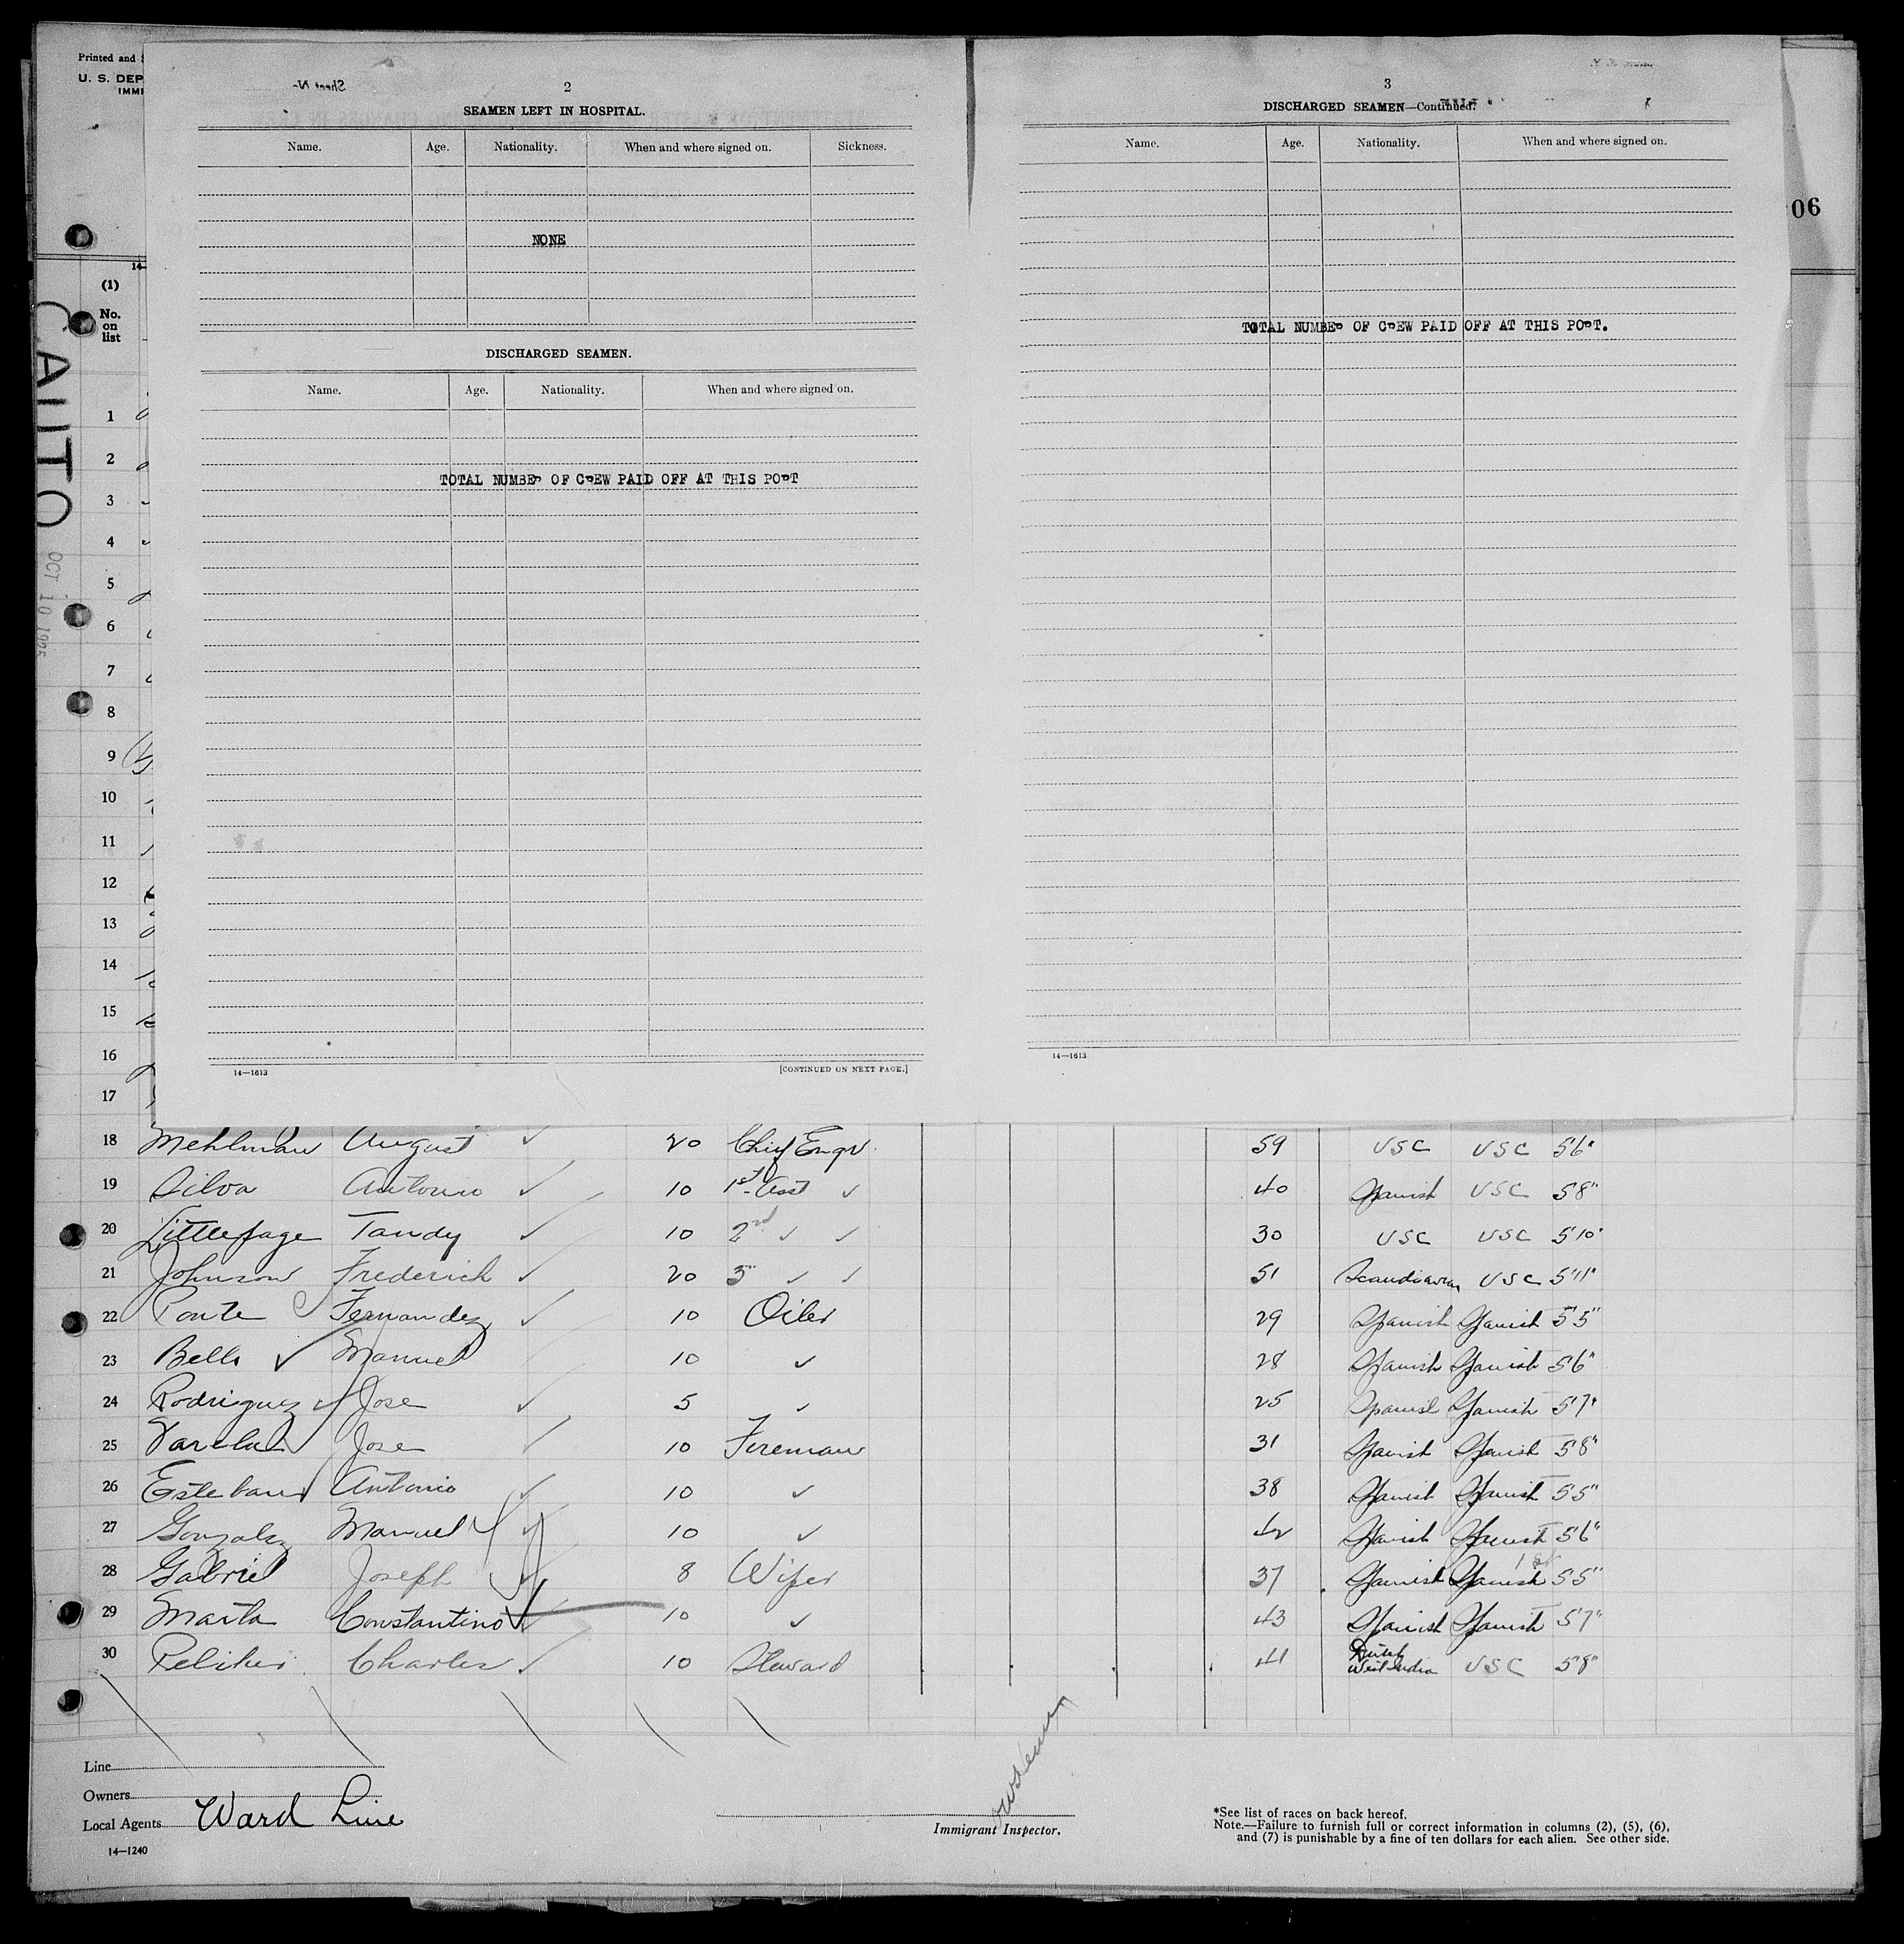 Printed and
U. S. DEP
IMMI
2
SEAMEN LEFT IN HOSPITAL.
Name. Age. Nationality. When and where signed on. Sickness.
NONE
DISCHARGED SEAMEN.
Name. Age. Nationality. When and where signed on.
TOTAL NUMBER OF CREW PAID OFF AT THIS PORT
14—1613
[CONTINUED ON NEXT PAGE.]
3
DISCHARGED SEAMEN—Continued.
Name. Age. Nationality. When and where signed on.
TOTAL NUMBER OF CREW PAID OFF AT THIS PORT.
14—1613
06
14—
(1)
No.
on
list
CAUTO
OCT 10 1925
1
2
3
4
5
6
7
8
9
10
11
12
13
14
15
16
17
18 Mehlman August ✓ 20 Chief Engr. 59 USC USC 5'6"
19 Silva Antonio ✓ 10 1st Asst ✓ 40 Spanish USC 5'8"
20 Littlepage Tandy ✓ 10 2nd ✓ ✓ 30 USC USC 5'10"
21 Johnson Frederick ✓ 20 3" ✓ ✓ 51 Scandinavian USC 5'11"
22 Ponte Fernandez ✓ 10 Oiler 29 Spanish Spanish 5'5"
23 Bello ✓ Manuel 10 ✓ 28 Spanish Spanish 5'6"
24 Rodriguez ✓ Jose ✓ 5 ✓ 25 Spanish Spanish 5'7"
25 Varela ✓ Jose ✓ 10 Fireman 31 Spanish Spanish 5'8"
26 Esteban ✓ Antonio ✓ 10 ✓ 38 Spanish Spanish 5'5"
27 Gonzalez Manuel ✓ 10 ✓ 42 Spanish Spanish 5'6"
28 Gabriel Joseph ✓ 8 Wiper 37 Spanish Spanish 5'5"
29 Marta Constantino ✓ 10 ✓ 43 Spanish Spanish 5'7"
30 Charles ✓ 10 Steward 41 Dutch West India USC 5'8"
Line
Owners
Local Agents Ward Line
14—1240
Immigrant Inspector.
*See list of races on back hereof.
Note.—Failure to furnish full or correct information in columns (2), (5), (6),
and (7) is punishable by a fine of ten dollars for each alien. See other side.